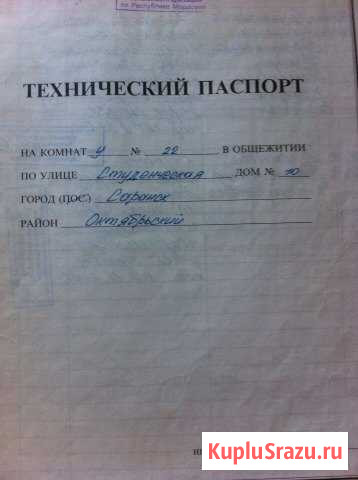 по Республике Мордовия
ТЕХНИЧЕСКИЙ ПАСПОРТ
НА КОМНАТ у № 22 В ОБЩЕЖИТИИ
ПО УЛИЦЕ Студенческая ДОМ № 10
ГОРОД (ПОС.) Саранск
РАЙОН Октябрьский
KupluSrazu.ru